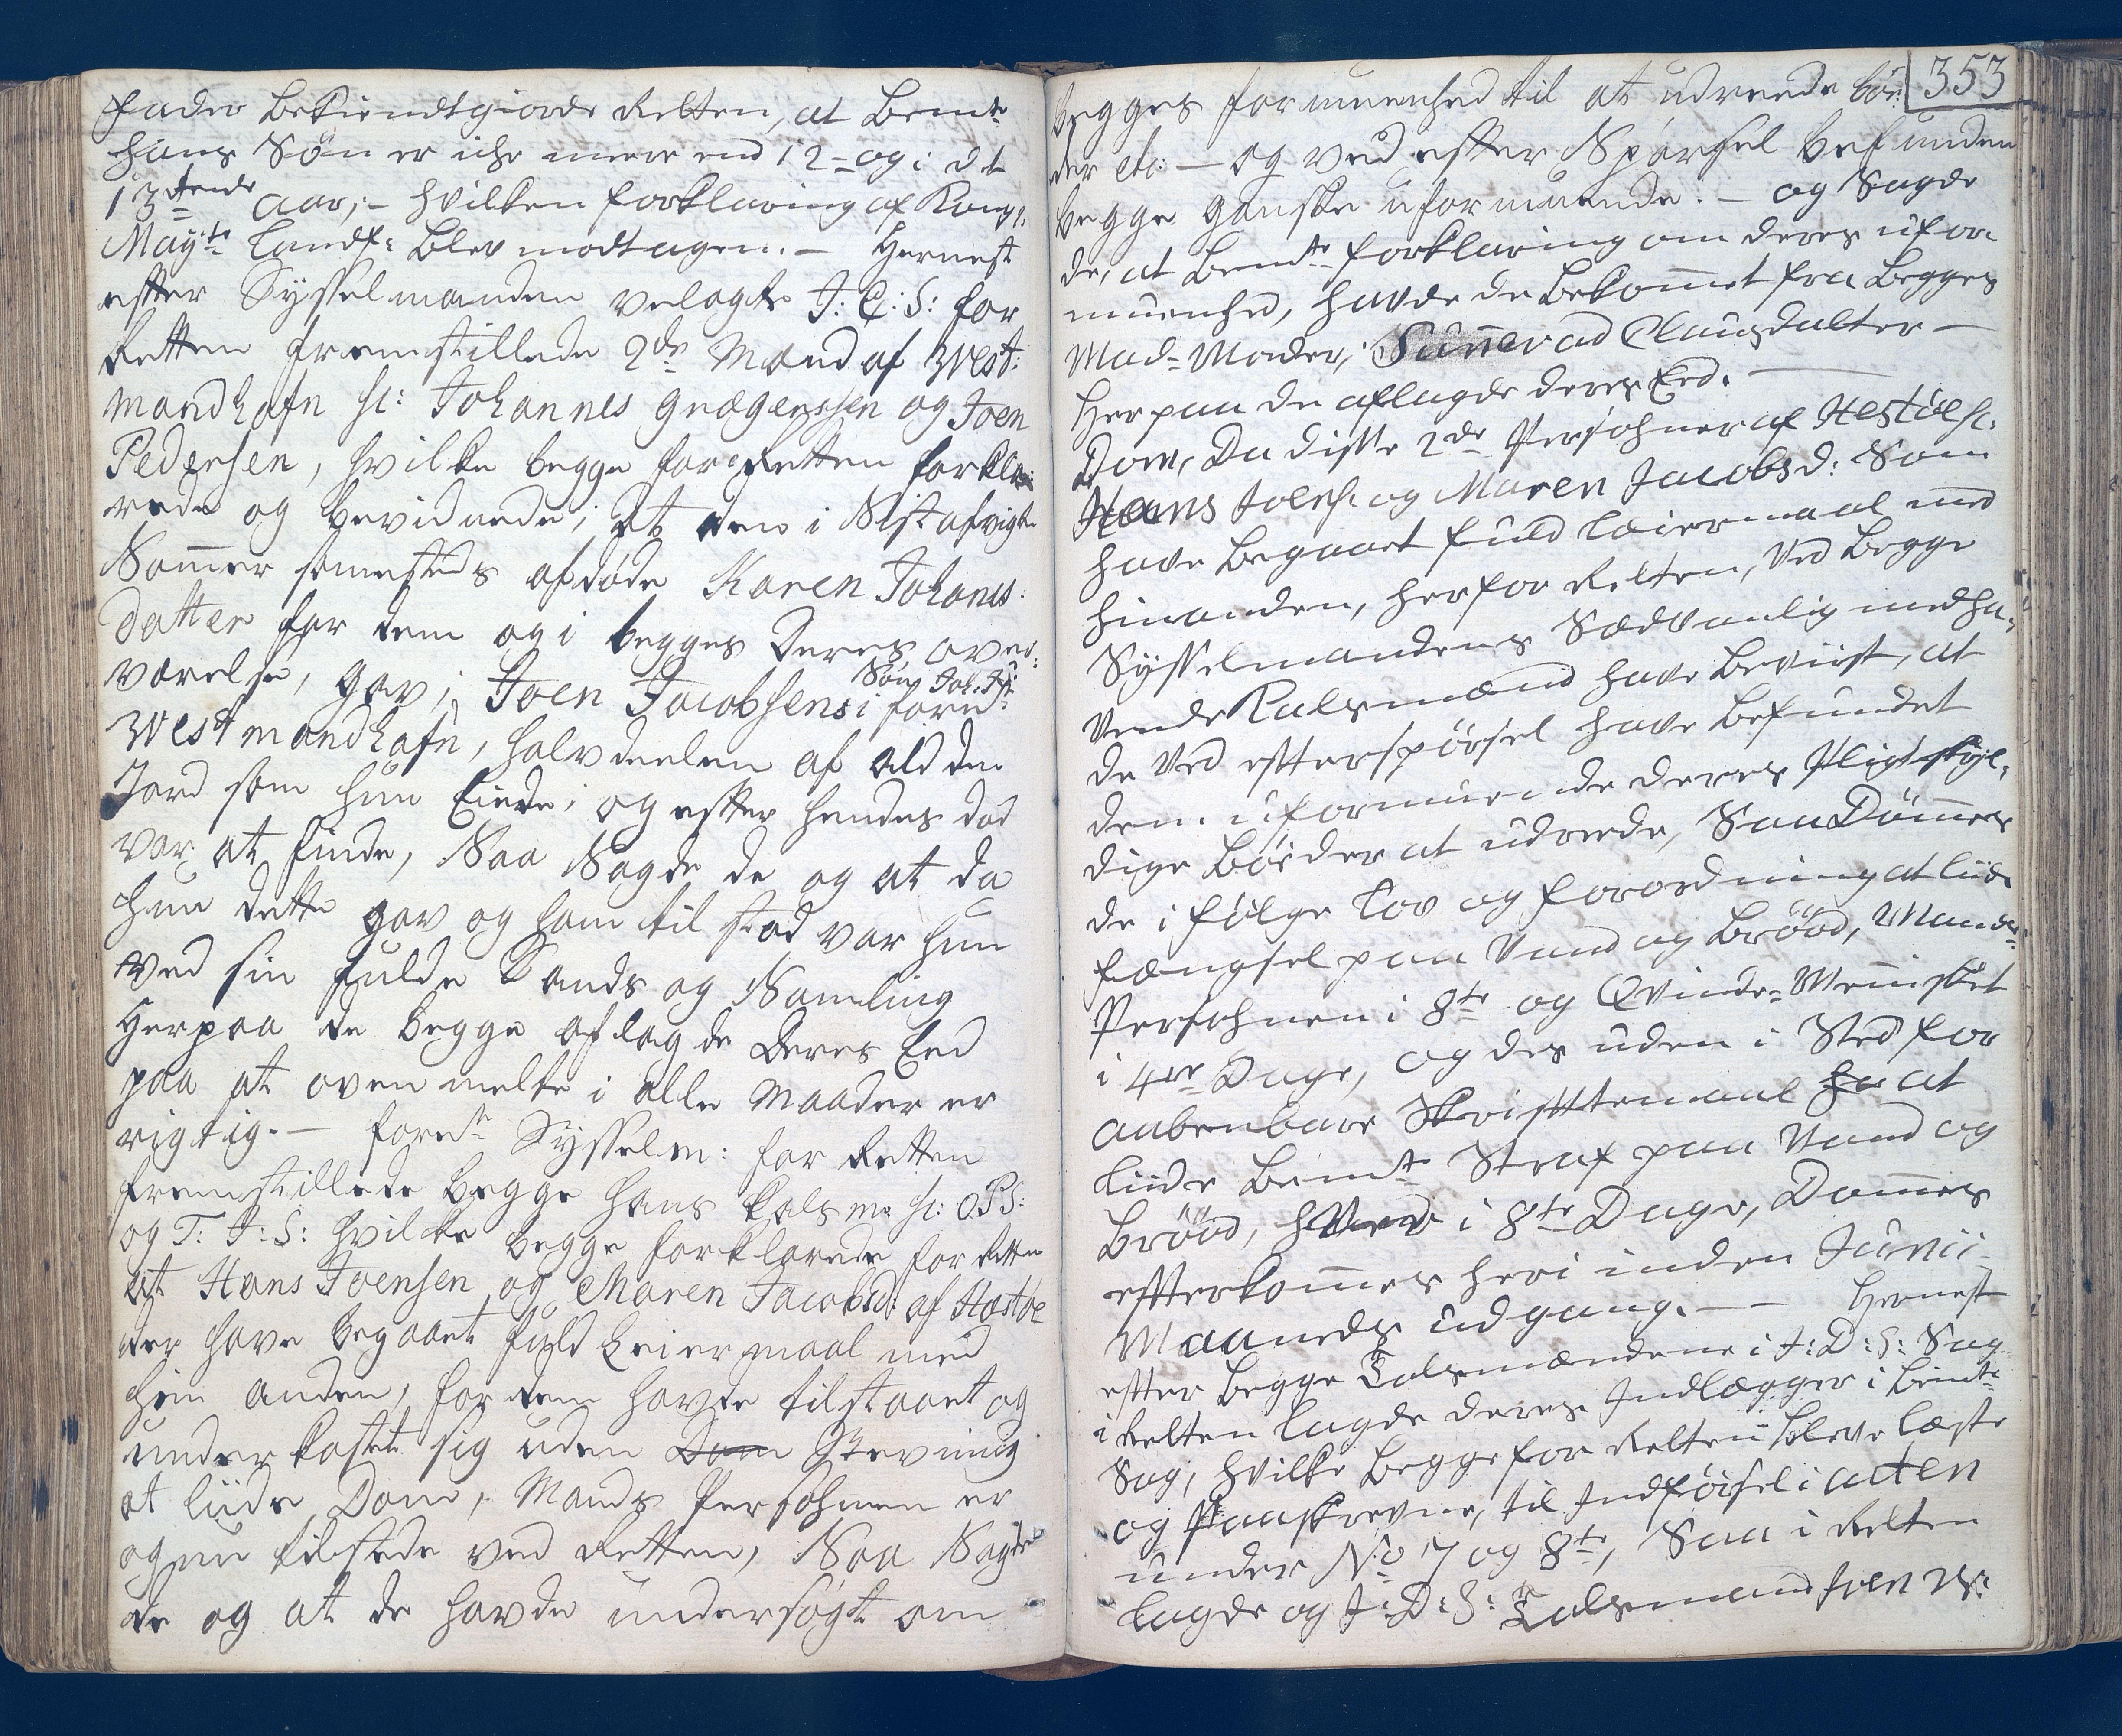 Fader bekiendtgiorde Retten, at bemte
hans Søn er iche meere end 12 - og i det
13tende aar; - hvilken forklaring af Kongl:
Mayts Landf: blev modtagen. - Hernest
efter Sysselmanden velagte J: C: S: for
Retten fremstillede 2de Mænd af West:
mandhafn sc: Johannes Grægersen og Joen
Pedersen, hvilke begge for Retten forkla:
rede og bevidnede; At den i Sist afvigte
Som̅er sammesteds afdøde Karen Johanis:
datter for dem og i begges Deres over:
værelse, gav; Joen Jacobsens Søn i forne
Westmandhafn, halvdeelen af ald den
Jord som hun Eiede, og efter hendes død
var at finde, Saa Sagde de og at da
hun dette gav og ham til stod var hun
ved sin fulde Sands og Samling
Herpaa de begge aflagde Deres Eed
paa at oven melte i alle Maader er
rigtig. - forne Sysselm: for Retten
fremstillede begge hans Kalsm: sc: O: P: S:
og T: J: S: hvilke begge forklarede for Retten
at Hans Joensen og Maren Jacobsd: af Hestøe
der have begaaet fuld Leiermaal med
hin anden, for dem havde tilstaaet og
underkastet sig uden Dom Stevning
at liide Dom, Mands Persohnen er
og nu tilstede ved Retten, Saa Sagde
de og at de havde undersøgt om
353
begges formuenhed til at udreede bø:
der etc: - og ved efter Spørsel befunden
begge ganske uformuende. - og Sagde
de, at bemte forklaring om deres ufor:
muenhed, havde de bekom̅et fra begges
Mad-Moder, Sun̅evad Clausdatter -
Herpaa de aflagde deres Eed. -
Dom, Da disse 2de Persohner af Hestøe sc:
Hans Joens: og Maren Jacobsd: Som
have begaaet fuld Leiermaal med
hinanden, her for Retten, ved begge
Sysselmandens Sædvanlig medha:
vende Kalsmænd have beviist, at
de ved efterspørsel have befundet
dem uformuende deres Pligtskyl:
dige bøder at udreede, Saa Døm̅es
de i følge Lov og forordning at liide
fængsel paa Vand og brööd, Mands:
Persohnen i 8te og Qvinde-Men̅isket
i 4re Dage, og des uden i Sted for
aabenbare Skriftemaal at
liide bemte Straf paa Vand og
brööd, hver i 8te Dage, Dom̅es
efterkom̅es heri inden Junii
Maaneds udgang. - - Hernest
efter begge Talsmændene i J: D: S: Sag
i Retten lagde deres Indlægger i bemte
Sag, hvilke begge for Retten bleve læste
og Paaskrevne, til Indførsel i acten
under No 7 og 8te, Saa i Retten
lagde og J: D: S: Talsmand Joen